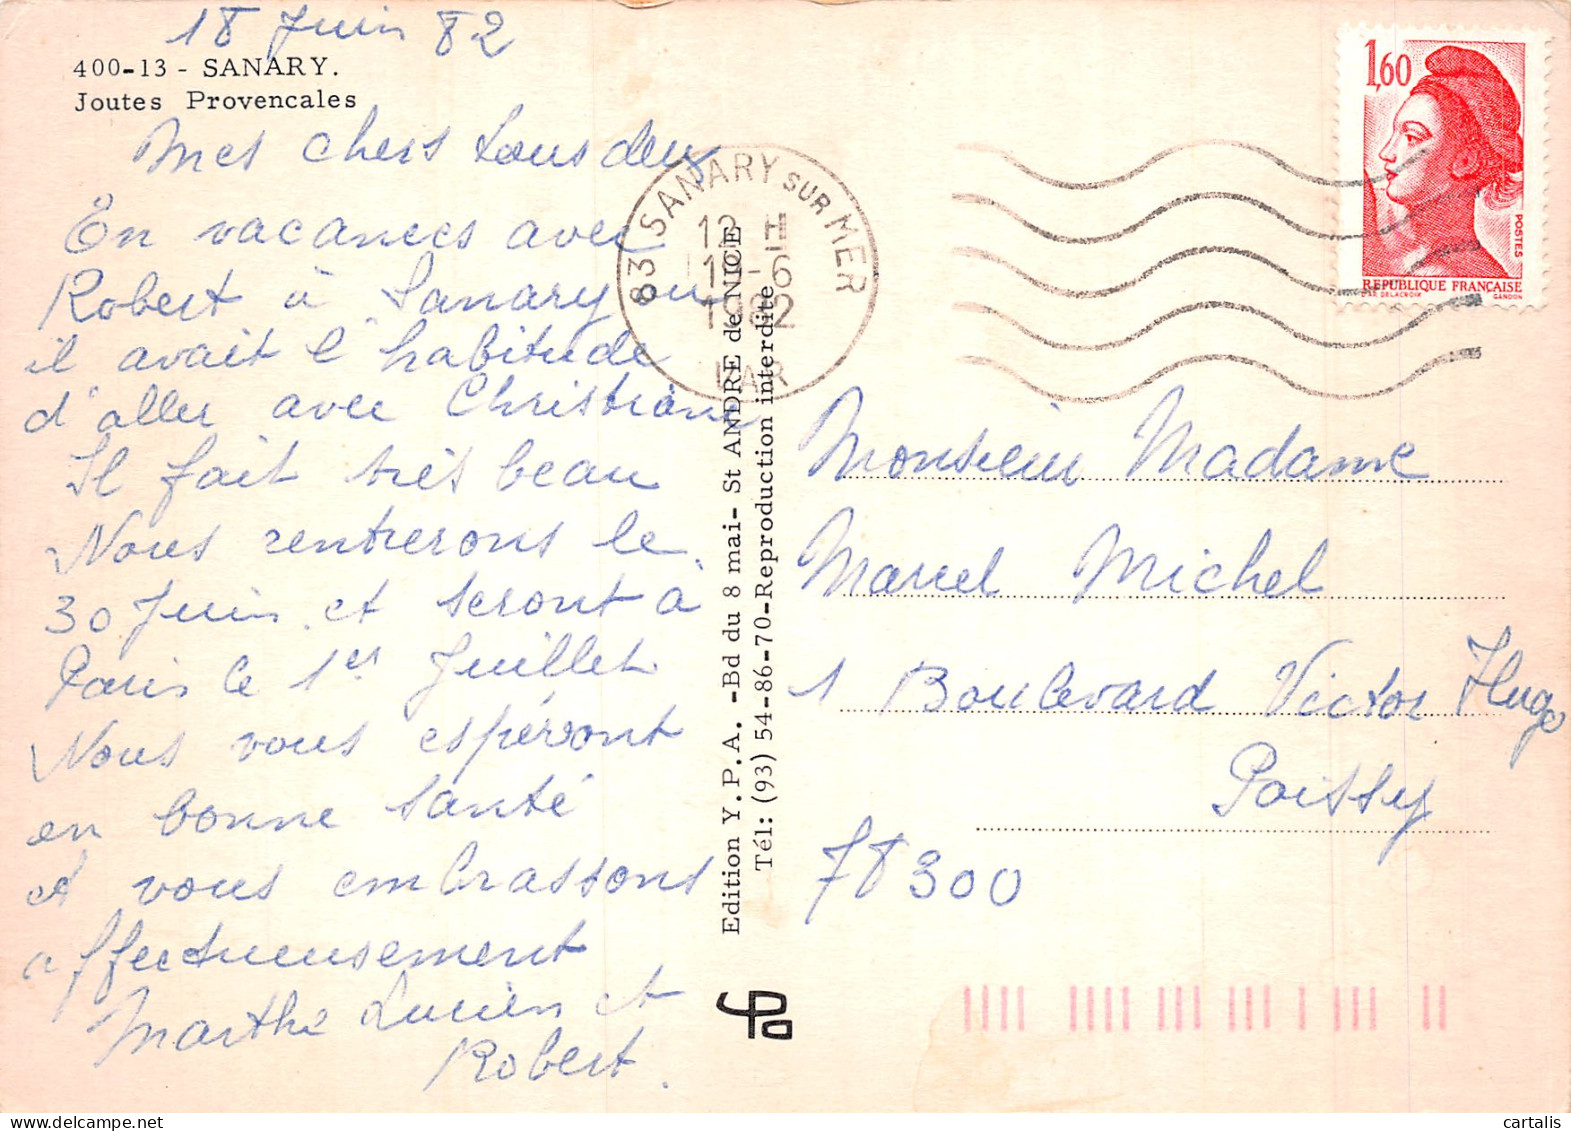 18 Juin 82
400-13 - SANARY.
Joutes Provencales
Mes chers tous deux
En vacances avec
Robert à Sanary ou
il avait l'habitude
d'aller avec Christiane
Il fait très beau
Nous rentrerons le
30 Juin et seront à
Paris le 1er Juillet
Nous vous espéront
en bonne santé
et vous embrassons
affectueusement
Marthe Lucien et
Robert.
Edition Y.P.A. -Bd du 8 mai- St ANDRE de NICE
Tél: (93) 54-86-70-Reproduction interdite
83 SANARY SUR MER
12 H
-6
1982
VAR
1,60
POSTES
REPUBLIQUE FRANÇAISE
D'AP. DELACROIX GANDON
Monsieur Madame
Marcel Michel
1 Boulevard Victor Hugo
Poissy
78300
cartalis
delcampe.net